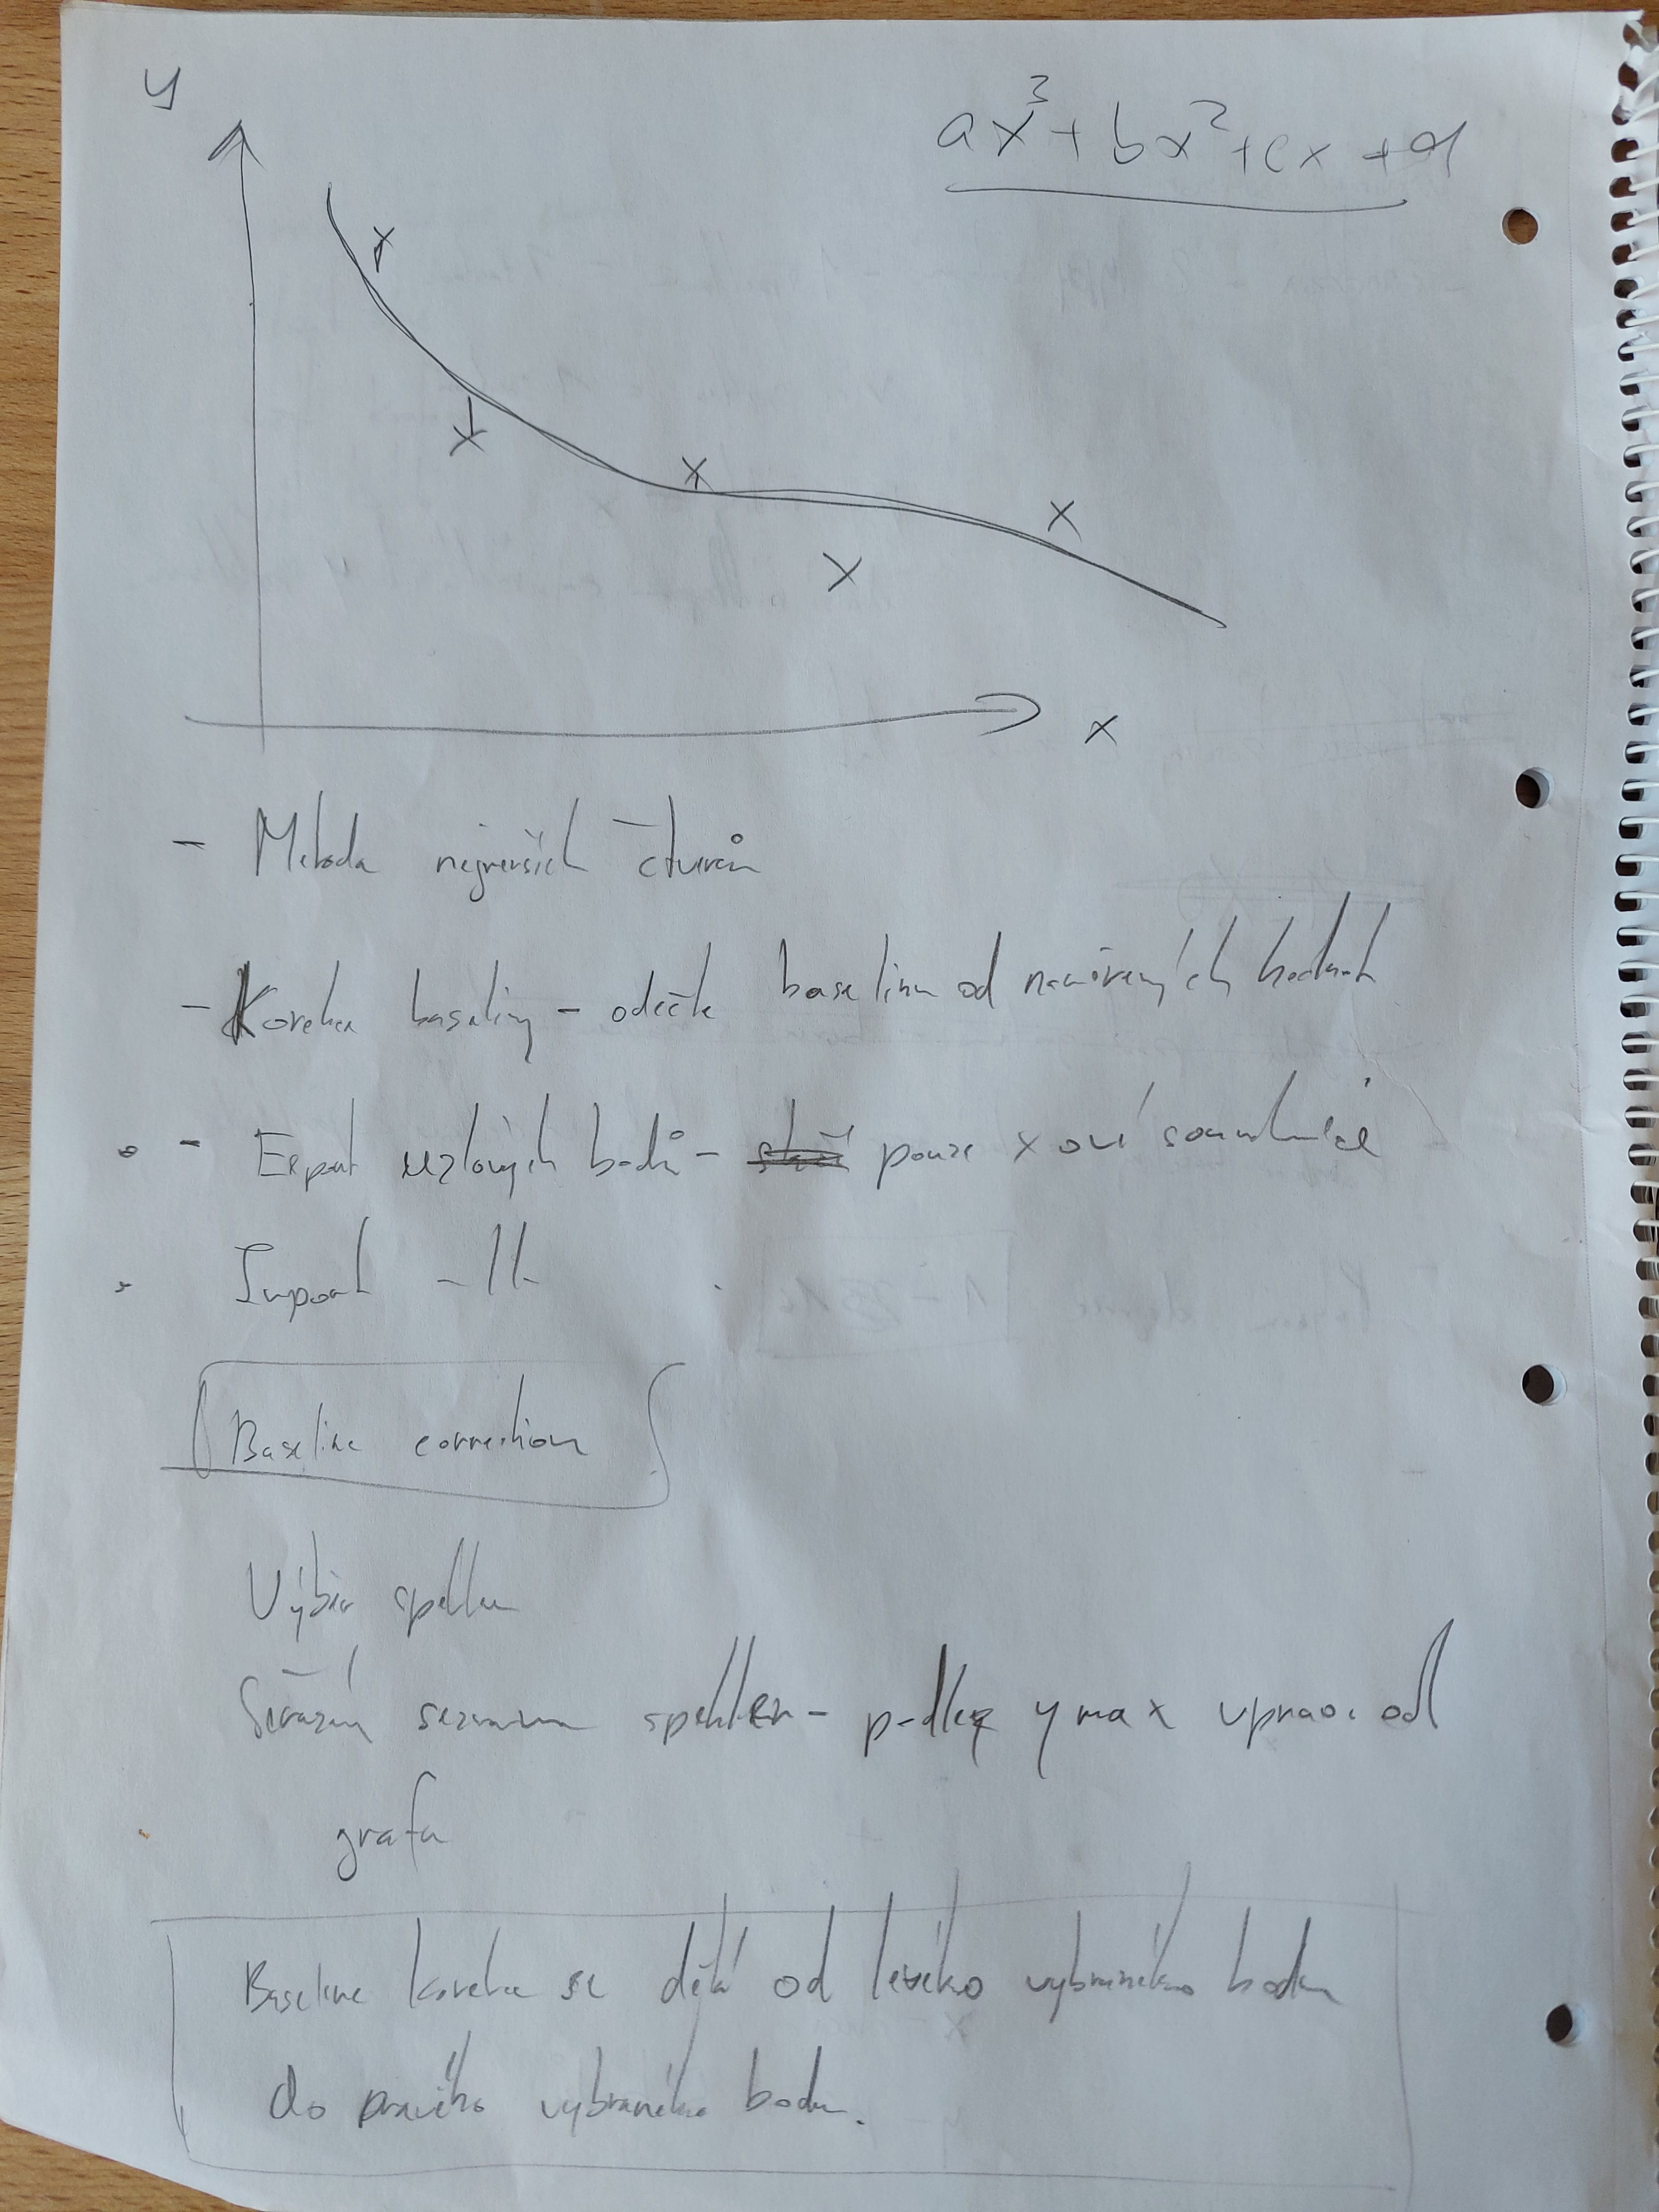 y
ax³ + bx² + cx + d
x
- Metoda nejmenších čtverců
- Korekce baseliny - odečte baselinu od naměřených hodnot
- Export uzlových bodů - pouze x ové souřadnice
Import -//-
Baseline correction
Výběr spektra
Seřazení seznamu spekter - podle y max vpravo od
grafu
Baseline korekce se dělá od levého vybraného bodu
do pravého vybraného bodu.